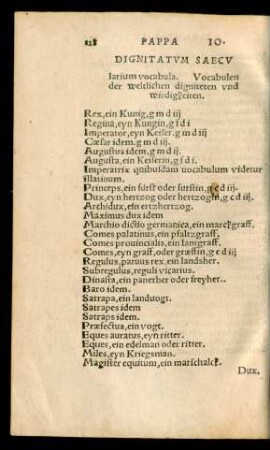 128 PAPPA IO.
DIGNITATVM SAECV
larium vocabula. Vocabulen
der weltlichen digniteten vnd
wirdigkeiten.
Rex, ein Kunig, g m d iij
Regina, eyn Kungin, g f d i
Imperator, eyn Keiser. g m d iij
Cæsar idem, g m d ij.
Augustus idem, g m d ij.
Augusta, ein Keiserin, g f d i.
Imperatrix quibusdam uocabulum videtur
illatinum.
Princeps, ein fürst oder furstin, g c d iij.
Dux, eyn hertzog oder hertzogin, g c d iij.
Archidux, ein ertzhertzog.
Maximus dux idem
Marchio dictio germanica, ein marckgraff.
Comes palatinus, ein pfaltzgraff.
Comes prouincialis, ein lantgraff.
Comes, eyn graff, oder gräffin, g c d iij
Regulus, paruus rex, ein landsher.
Subregulus, reguli vicarius.
Dinasta, ein panerher oder freyher..
Baro idem.
Satrapa, ein landuogt.
Satrapes idem
Satraps idem.
Præfectus, ein vogt.
Eques auratus, eyn ritter.
Eques, ein edelman oder ritter.
Miles, eyn Kriegsman.
Magister equitum, ein marschalck.
Dux.